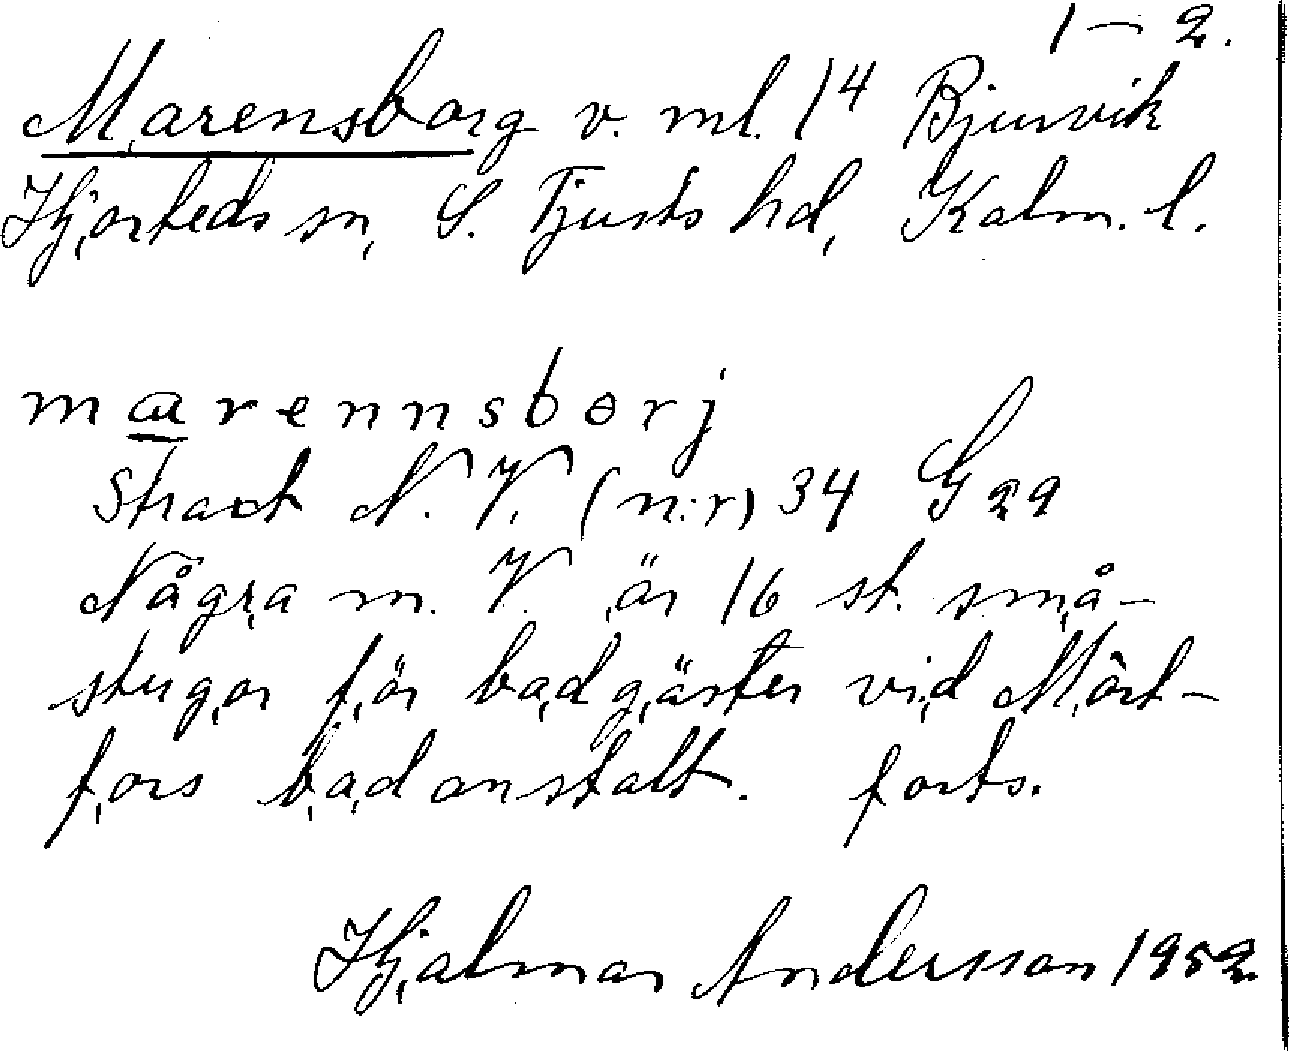 1 – 2.
Marensborg v. ml. 1⁴ Bjurvik
Hjorteds sn, S. Tjusts hd, Kalm. l.
marennsbɵrj
Strax N. V. (n:r) 34 G 29
Några m. V. är 16 st. små-
stugor för badgäster vid Mört-
fors badanstalt. forts.
Hjalmar Andersson 1952